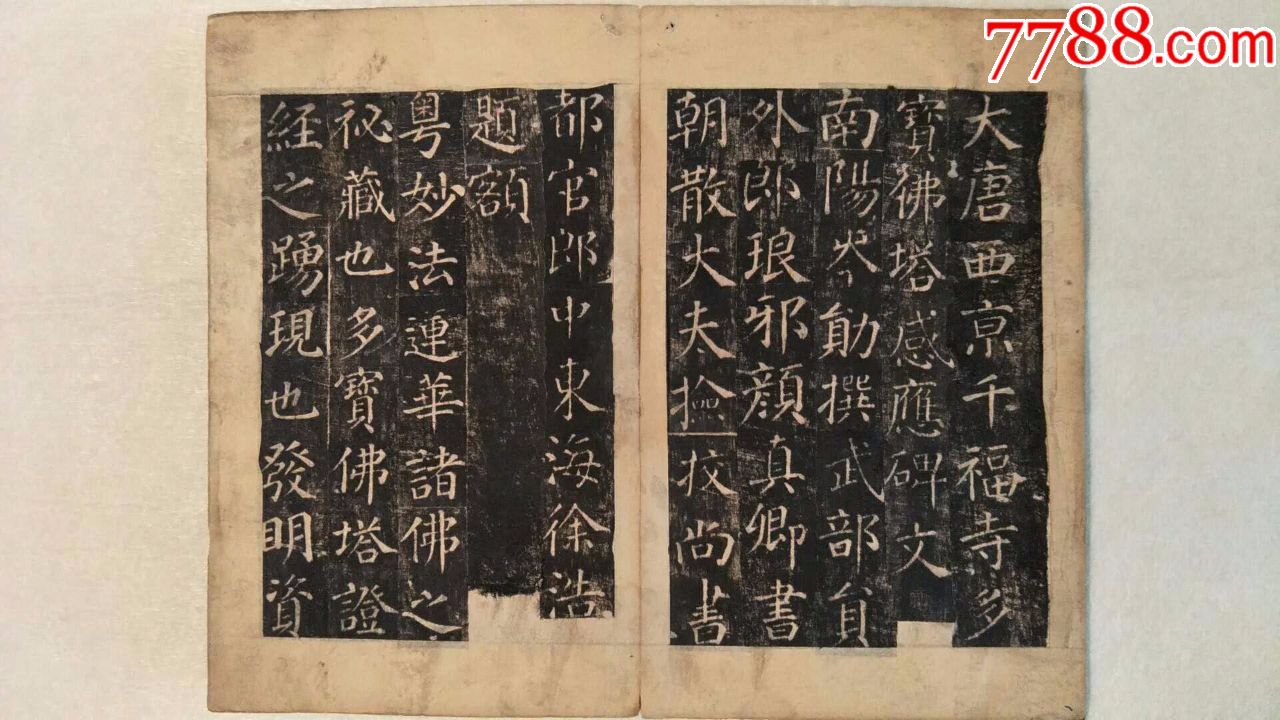 7788.com
大唐西京千福寺多
寶佛塔感應碑文
南陽岑勛撰武部貟
外郎琅邪顏真卿書
朝散大夫撿挍尚書
都官郎中東海徐浩
題額
粵妙法蓮華諸佛之
祕藏也多寶佛塔證
經之踴現也發明資